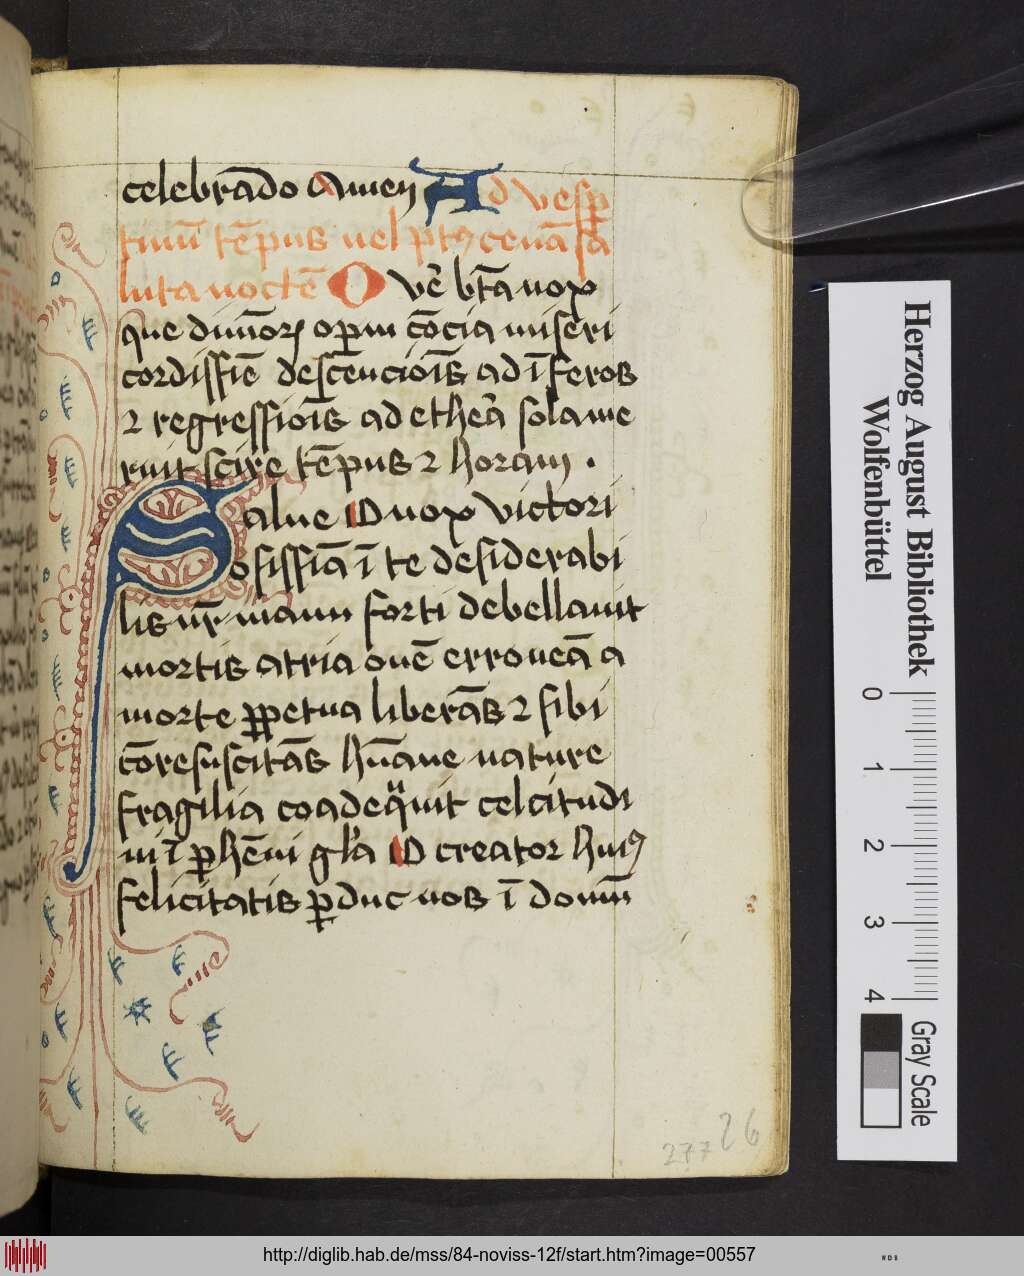 celebrādo Amen Ad vesp̲
tinū tēpus uel p̲t9 cenā sa
luta noctē O vē bt̄a nox
que diuīoꝝ op̲m cōcia miseri
cordissīe descēcioīs ad īferos
⁊ regressiōis ad ethēa sola me
ruit scire tēpus ⁊ horam .
Salue O nox victori
osissīa ī te desiderabi
lis nr̄ manu forti debellauit
mortis atria ouē erroneā a
morte p̲petua liberās ⁊ sibi
cōresuscitās hūane nature
fragilia coadeqͣuit celcitudi
ni ī p̲hēni gl̄a O creator hui9
felicitatis p̲duc nos ī domū
277 26
Herzog August Bibliothek
Wolfenbüttel
0 1 2 3 4
Gray Scale
http://diglib.hab.de/mss/84-noviss-12f/start.htm?image=00557